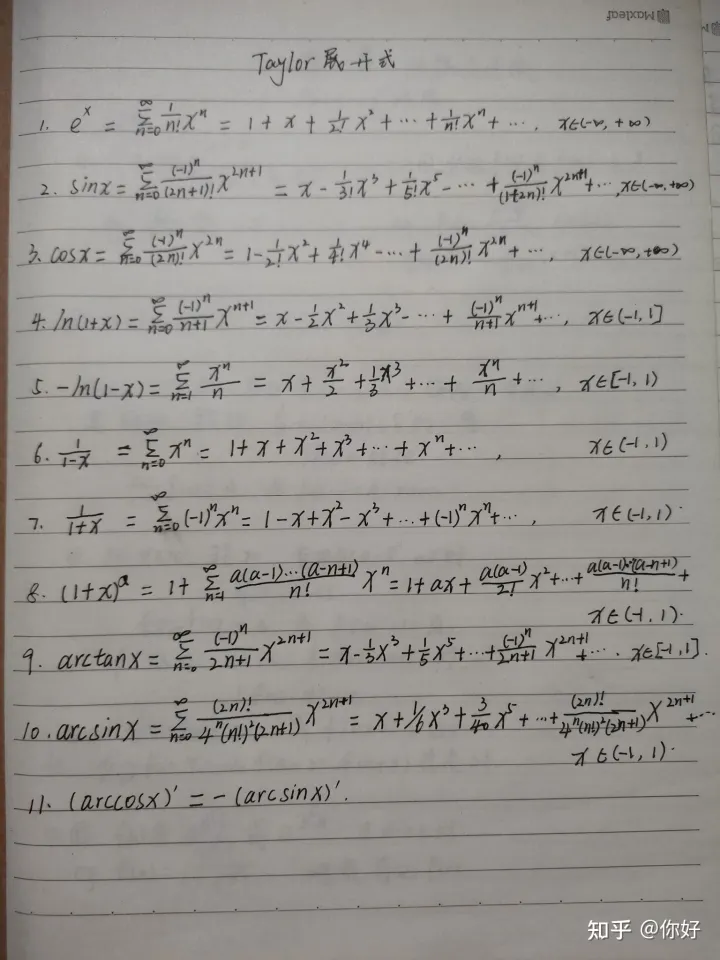 Maxleaf
Taylor展开式
1. e^x = \sum_{n=0}^{\infty} \frac{1}{n!} x^n = 1 + x + \frac{1}{2!} x^2 + ⋯ + \frac{1}{n!} x^n + ⋯ , x∈(-∞, +∞)
2. sinx = \sum_{n=0}^{\infty} \frac{(-1)^n}{(2n+1)!} x^{2n+1} = x - \frac{1}{3!} x^3 + \frac{1}{5!} x^5 - ⋯ + \frac{(-1)^n}{(1+2n)!} x^{2n+1} + ⋯ , x∈(-∞, +∞)
3. cosx = \sum_{n=0}^{\infty} \frac{(-1)^n}{(2n)!} x^{2n} = 1 - \frac{1}{2!} x^2 + \frac{1}{4!} x^4 - ⋯ + \frac{(-1)^n}{(2n)!} x^{2n} + ⋯ , x∈(-∞, +∞)
4. ln(1+x) = \sum_{n=0}^{\infty} \frac{(-1)^n}{n+1} x^{n+1} = x - \frac{1}{2} x^2 + \frac{1}{3} x^3 - ⋯ + \frac{(-1)^n}{n+1} x^{n+1} + ⋯ , x∈(-1, 1]
5. -ln(1-x) = \sum_{n=1}^{\infty} \frac{x^n}{n} = x + \frac{x^2}{2} + \frac{1}{3} x^3 + ⋯ + \frac{x^n}{n} + ⋯ , x∈[-1, 1)
6. \frac{1}{1-x} = \sum_{n=0}^{\infty} x^n = 1 + x + x^2 + x^3 + ⋯ + x^n + ⋯ , x∈(-1, 1)
7. \frac{1}{1+x} = \sum_{n=0}^{\infty} (-1)^n x^n = 1 - x + x^2 - x^3 + ⋯ + (-1)^n x^n + ⋯ , x∈(-1, 1).
8. (1+x)^a = 1 + \sum_{n=1}^{\infty} \frac{a(a-1)⋯(a-n+1)}{n!} x^n = 1 + ax + \frac{a(a-1)}{2!} x^2 + ⋯ + \frac{a(a-1)⋯(a-n+1)}{n!} +
x∈(-1, 1).
9. arctanx = \sum_{n=0}^{\infty} \frac{(-1)^n}{2n+1} x^{2n+1} = x - \frac{1}{3} x^3 + \frac{1}{5} x^5 + ⋯ + \frac{(-1)^n}{2n+1} x^{2n+1} + ⋯ . x∈[-1, 1].
10. arcsinx = \sum_{n=0}^{\infty} \frac{(2n)!}{4^n(n!)^2(2n+1)} x^{2n+1} = x + \frac{1}{6} x^3 + \frac{3}{40} x^5 + ⋯ + \frac{(2n)!}{4^n(n!)^2(2n+1)} x^{2n+1} + ⋯
x∈(-1, 1).
11. (arccosx)' = -(arcsinx)'.
知乎 @你好